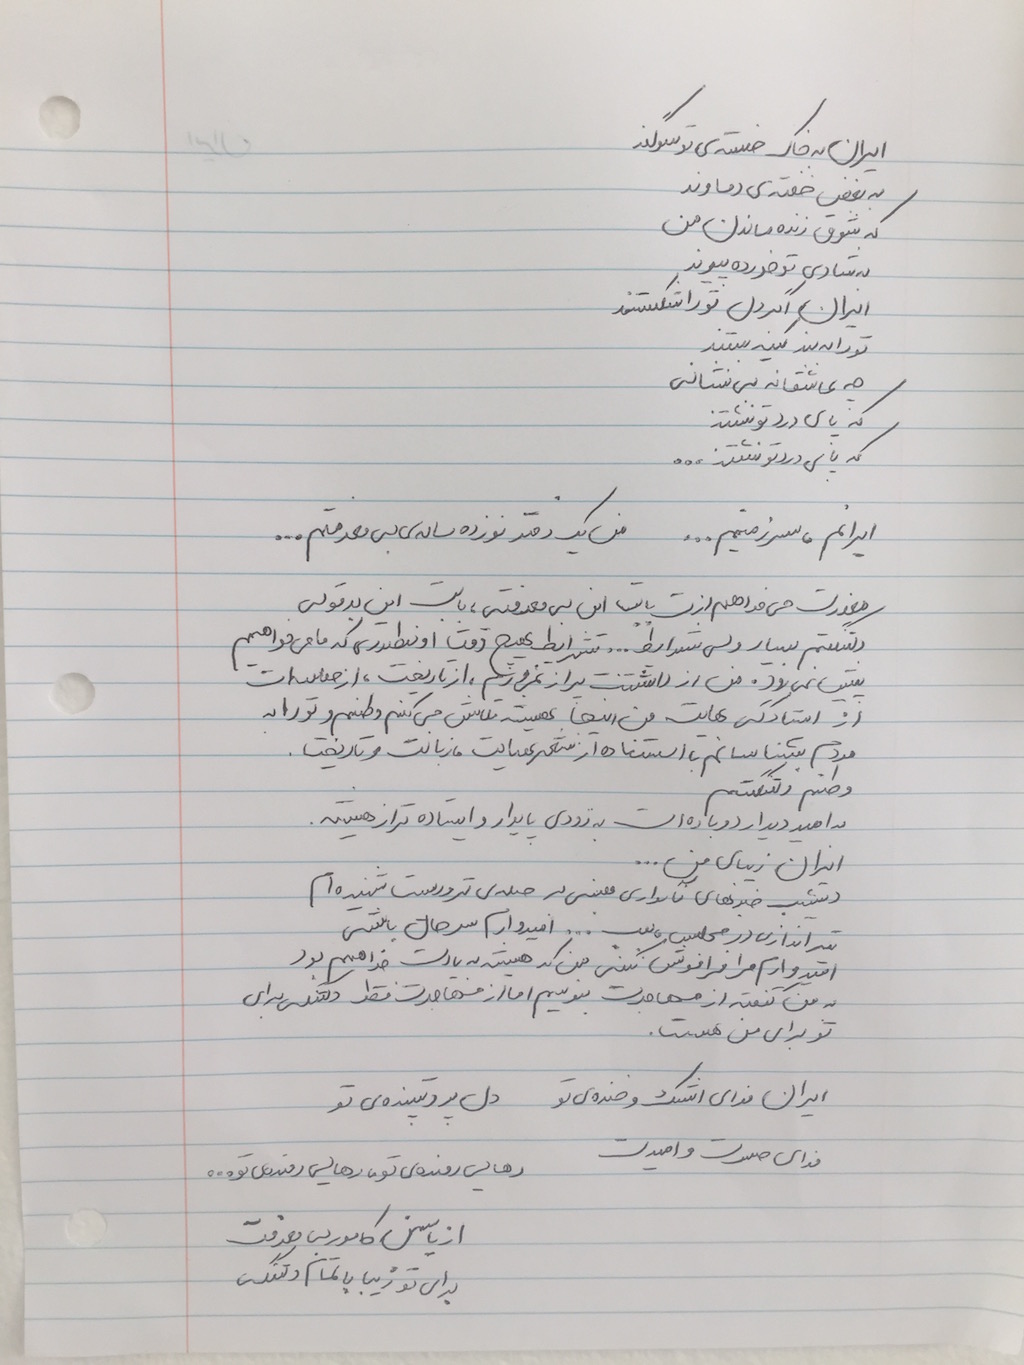 ایران به خاک خسته‌ی تو سوگند
به بغض خفته‌ی دماوند
که شوق زنده ماندن من
به شادی تو خورده پیوند
ایران اگر دل تو را شکستند
تو را به بند کینه بستند
چه عاشقانه بی نشانی
که پای درد تو نشستند
که پای درد تو نشستند ...
ایرانم، سرزمینم ... من یک دختر نوزده ساله‌ی بی معرفتم ...
معذرت می‌خواهم ازت بابت این بی معرفتی، بابت این بدقولی
دلتنگتم بسیار ولی شرایط ... شرایط هیچ وقت اونطوری که ما می‌خواهیم
پیش نمی‌رود. من از داشتنت پر از غرورم، از تاریخت، از
از استادگی هایت من اینجا همیشه تلاش می‌کنم وطنم و تو را به
مردم بشناسانم با استفاده از شعرهایت، زبانت و تاریخت.
وطنم دلتنگتم
به امید دیدار دوباره‌ات به زودی پایدار و ایستاده تر از همیشه.
ایران زیبای من ...
دیشب خبرهای ناگواری مبنی بر حمله‌ی تروریست شنیده‌ام
تیراندازی در مجلس ... امیدوارم سرحال باشی
امیدوارم مرا فراموش نکنی من که همیشه به یادت خواهم بود
به من گفته از مهاجرت بنویسم اما از مهاجرت فقط دلتنگی برای
تو برای من هست.
ایران فدای اشک و خنده‌ی تو دل پر و تپنده‌ی تو
فدای حسرت و امیدت
رهایی رمنده‌ی تو، رهایی رمنده‌ی تو ...
از یاسمن بی معرفت
برای تو زیبا با تمام دلتنگی
ایران